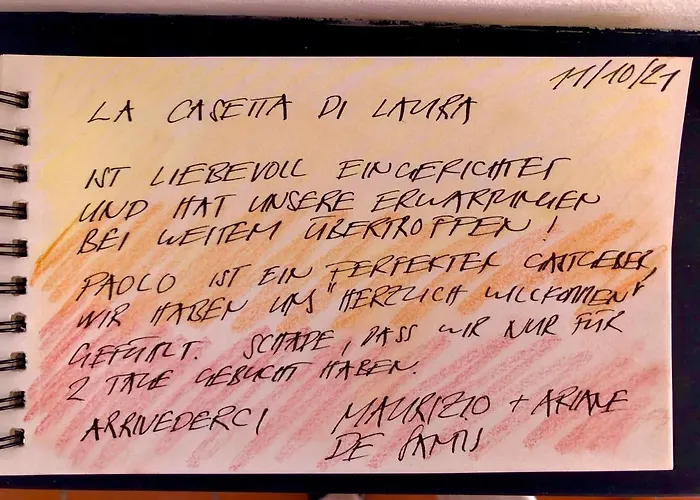 11/10/21
LA CASETTA DI LAURA
IST LIEBEVOLL EINGERICHTET
UND HAT UNSERE ERWARTUNGEN
BEI WEITEM ÜBERTROFFEN!
PAOLO IST EIN PERFEKTER GASTGEBER,
WIR HABEN UNS "HERZLICH WILLKOMMEN"
GEFÜHLT. SCHADE, DASS WIR NUR FÜR
2 TAGE GEBUCHT HABEN.
ARRIVEDERCI MAURIZIO + ARIANE
DE